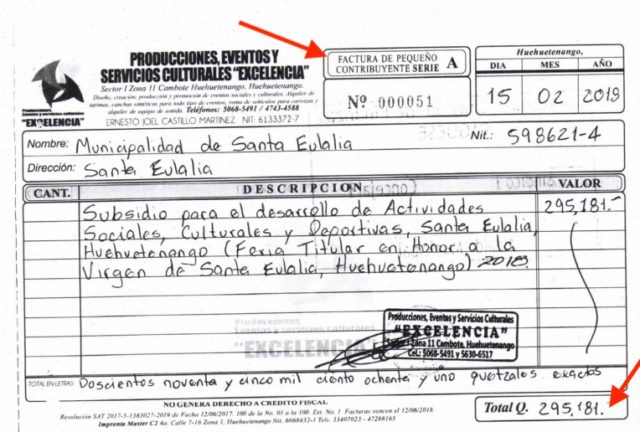 PRODUCCIONES, EVENTOS Y
SERVICIOS CULTURALES "EXCELENCIA"
Sector I Zona 11 Cambote Huehuetenango, Huehuetenango.
Diseño, creación, producción y promoción de eventos sociales y culturales. Alquiler de
tarimas, canchas sintéticas para todo tipo de eventos, renta de vehículos para carrozas y
alquiler de equipo de sonido. Teléfonos: 5068-5491 / 4743-4588
ERNESTO JOEL CASTILLO MARTINEZ NIT: 6133372-7
Producciones,
Eventos y servicios culturales
"EXCELENCIA"
FACTURA DE PEQUEÑO
CONTRIBUYENTE SERIE A
Nº 000051
Huehuetenango,
DIA MES AÑO
15 02 2019
Nombre: Municipalidad de Santa Eulalia Nit.: 598621-4
Dirección: Santa Eulalia
CANT. DESCRIPCION VALOR
Subsidio para el desarrollo de Actividades 295,181.-
Sociales, Culturales y Deportivas, Santa Eulalia,
Huehuetenango (Feria Titular en Honor a la
Virgen de Santa Eulalia, Huehuetenango) 2019.
Producciones, Eventos y Servicios Culturales
"EXCELENCIA"
Sector I Zona 11 Cambote, Huehuetenango
Cel.: 5068-5491 y 5630-6517
TOTAL EN LETRAS Doscientos noventa y cinco mil ciento ochenta y uno quetzales exactos
NO GENERA DERECHO A CREDITO FISCAL
Resolución SAT 2017-5-1363027-2019 de Fecha 12/06/2017. 100 de la No. 01 a la 100. Ext. No. 1 Facturas vencen el 12/06/2018.
Imprenta Master C2 4a. Calle 7-16 Zona 1, Huehuetenango Nit. 6068452-1 Tels. 33407023 - 47288165
Total Q. 295,181.